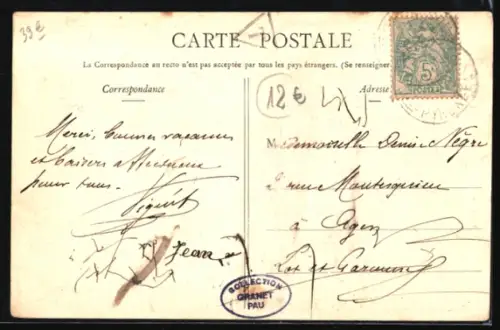 39€
CARTE POSTALE
La Correspondance au recto n'est pas acceptée par tous les pays étrangers. (Se renseigner
Correspondance
Adresse
12 €
5
POSTES
Merci, bonnes vacances
et baisers affectueux
pour tous.
Mademoiselle Denise Nègre
2 rue Montesquieu
à Agen
Lot et Garonne
Jean
COLLECTION
GRANET
PAU